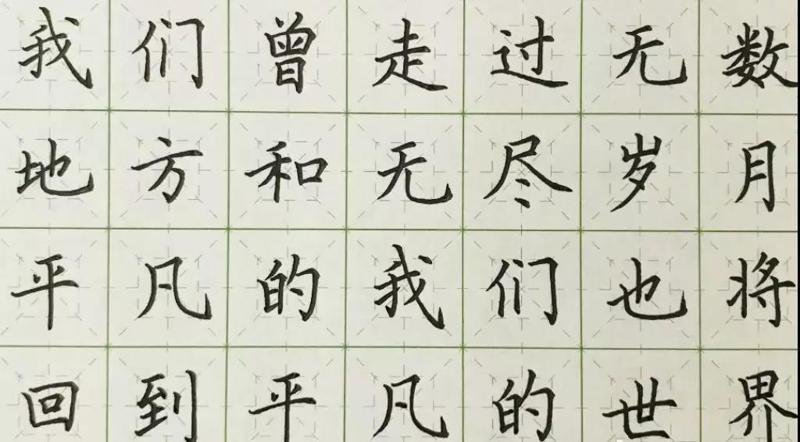 我们曾走过无数
地方和无尽岁月
平凡的我们也将
回到平凡的世界